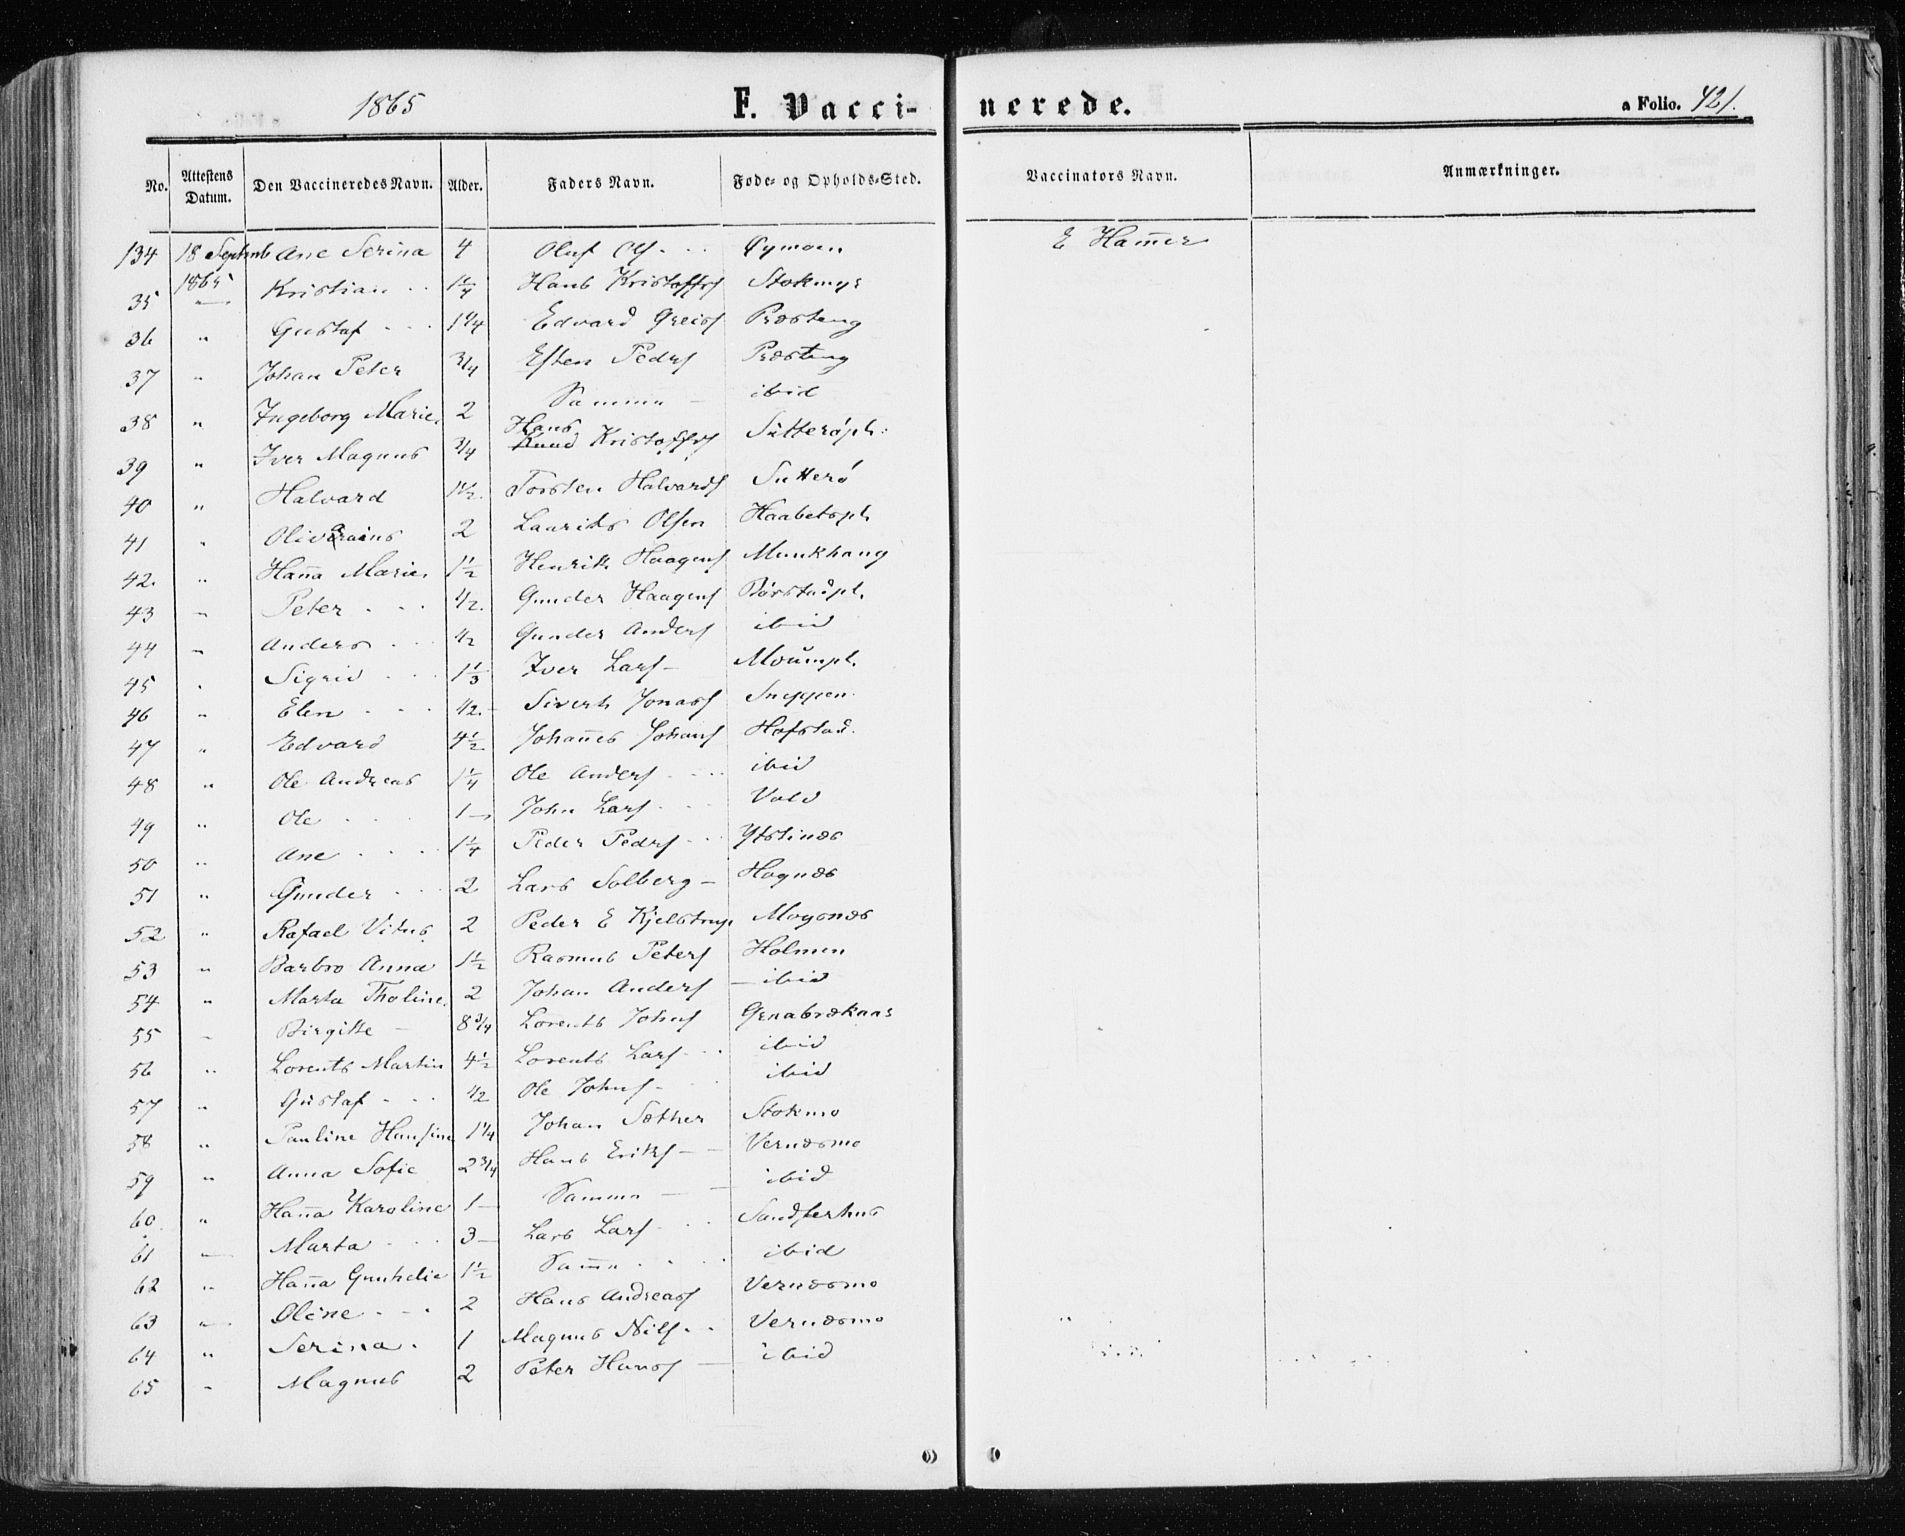 1865 F. Vacci- nerede. a Folio. 421.
No. Attestens Datum. Den Vaccineredes Navn. Alder. Faders Navn. Føde- og Opholds-Sted. Vaccinators Navn. Anmærkninger.
134 18 Septemb Ane Serina 4 Oluf Ols. Øymoen E Ham̄er
35 1865 — Kristian 1 1/4 Hans Kristoffs Stokmyr
36 " Gustaf 1 1/4 Edvard Greiss Præsteng
37 " Johan Peter 3/4 Esten Peders Præsteng
38 " Ingeborg Marie 2 Samme — ibid
39 " Iver Magnus 3/4 Hans Kristoffs Sutterøpl.
40 " Halvard 1 1/2 Torsten Halvards Sutterø
41 " Oliveraius 2 Laurits Olsen Haabetspl
42. " Han̄a Marie 1 1/2 Henrik Haagens Munkhaug
43 " Peter 1/2. Gunder Haagens Børstadpl.
44 " Anders 1/2 Gunder Anders ibid
45 " Sigrid 1 1/3 Iver Lars — Moumpl.
46 " Elen 1/2. Sivert Jonass Sneppen
47 " Edvard 4 1/2 Johan̄es Johans Hofstad.
48 " Ole Andreas 1 1/4 Ole Anders ibid
49 " Ole 1 — John Lars Vold
50 " Ane 1 1/4 Peder Peders Ytstinæs
51 " Gunder 2 Lars Solberg — Hognes
52 " Rafael Vitus 2 Peder E Kjelstrup Mogsnæs
53 " Barbro Anna 1 1/2 Rasmus Peters Holmen
54 " Marta Tholine 2 Johan Anders — ibid
55 " Birgitte — 8 3/4 Lorents Johns Grnabrækaas
56 " Lorents Martin 4 1/2 Lorents Lars ibid
57 " Gustaf 1/2 Ole Johns ibid
58 " Pauline Hansine 1 1/4 Johan Sæther Stokmo
59 " Anna Sofie 2 3/4 Hans Eriks — Vernæsmo
60. " Han̄a Karoline 1 — Samme — ibid
61 — Marta 3 — Lars Lars Sandferhus
62 " Han̄a Gunhelie 1 1/2 Sam̄e ibid
63 — Oline 2 Hans Andreass Vernæsmo
64 " Serina. 1 Magnus Nils Vernæsmo
65 " Magnus 2 Peter Hans — ibid